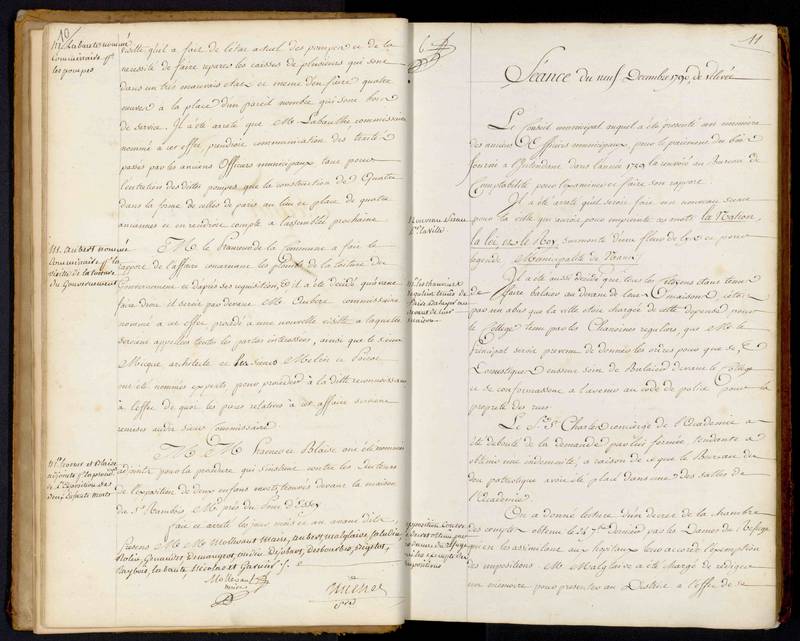 10
M. Labauté nommé
Commissaire pr
les pompes
visitte qu'il a fait de l'état actuel des pompes et de la
necessité de faire reparer les caisses de plusieurs qui sont
dans un tres mauvais état et meme d'en faire quatre
neuves a la place d'un pareil nombre qui sont hors
de service. Il a été areté que Mr Labauthe commissaire
nommé a cet effet prendroit communication des traités
passés par les anciens Officiers municipaux tant pour
l'entretien des dittes pompes que la construction de quatre
dans la forme de celles de paris au lieu et place de quatre
anciennes et en rendroit compte a l'assemblée prochaine
M. Aubert nommé
Commissaire pr la
visitte de la toiture
du Gouvernement
M. le Procureur de la Commune a fait le
raport de l'affaire concernant les plombs de la toiture du
Gouvernement et d'après ses requisitions il a été decidé qu'avant
faire droit il seroit par devant M. Aubert commissaire
nommé a cet effet procedé a une nouvelle visitte a laquelle
seroient appellées toutes les parties interessées, ainsi que le Sieur
Mique architecte et les sieurs Melin et
ont été nommés experts pour proceder a la ditte reconnoissance
a l'effet de quoi les pieces relatives a cet affaire seroient
remises audit Sieur Commissaire
et Blaise
adjoints pr la procedure
de l'Exposition des
deux Enfants morts
M. M. et Blaise ont été nommés
adjoints pour la procedure qui s'instruit contre les Auteurs
de l'exposition de deux enfans morts trouvés devant la maison
du Sr Md près du Pont d'Essey
fait et areté les jour mois et an avant dits,
Presens M. M. Mollevaut Maire, Aubert, Malglaive,
Nicolas et Garnier
Mollevaut
maire
Michel
Sre
11
Séance du neuf Decembre 1790, de relevée
Le Conseil municipal auquel a été presenté un memoire
des anciens Officiers municipaux, pour le paiement du bois
fourni a l'Intendant dans l'année 1789 la renvoié au Bureau de
Comptabilité pour l'examiner et faire son raport
Nouveau Sceau
Pr la Ville
Il a été areté qu'il seroit fait un nouveau sceau
pour la ville qui auroit pour empreinte ces mots la Nation,
la loi, et le Roy, surmonté d'une fleur de lys et pour
legende Municipalité de Nancy
Il a été aussi decidé que tous les Citoyens etant tenus
de faire balaier au devant de leur maison, c'etoit
par un abus que la ville etoit chargée de cette depense pour
le College tenu par les Chanoines reguliers, que Mr le
Principal seroit prevenu de donner les ordres pour que ses
Domestiques eussent soin de balaier devant le College
et se conformassent a l'avenir au code de police pour la
propreté des rues
Le Sr St Charles concierge de l'Academie a
été debouté de la demande par lui formée, tendante a
obtenir une indemnité, a raison de ce que le Bureau du
don patriotique avoit été placé dans une des salles de
l'Academie
On a donné lecture d'un decret de la chambre
des comptes obtenu le 24 7bre dernier par les Dames du Refuge
qui en les assimilant aux hopitaux leur accorde l'exemption
des impositions. Mr Malglaive a été chargé de rediger
un memoire pour presenter au District a l'effet de se